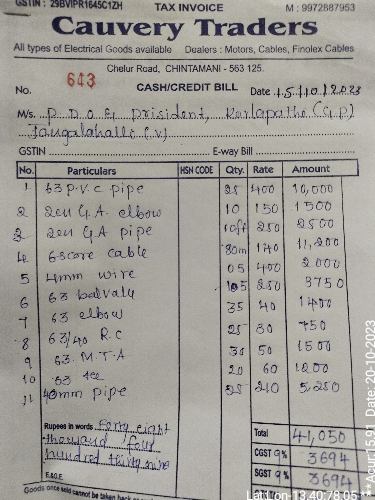 GSTIN : 29BVIPR1645C1ZH TAX INVOICE M : 9972887953
Cauvery Traders
All types of Electrical Goods available Dealers : Motors, Cables, Finolex Cables
Chelur Road, CHINTAMANI - 563 125.
No. 643 CASH/CREDIT BILL Date 15/10/2023
M/s. P D O & Prisident,
GSTIN E-way Bill
No. Particulars HSN CODE Qty. Rate Amount
1 63 p.v.c pipe 25 400 10,000
2 G.A. elbow 10 150 1500
3 G.A pipe 10ft 250 2500
4 6score cable 80m 140 11,200
5 4mm wire 05 400 2000
6 63 250 3750
7 63 elbow 35 40 1400
8 63/40 R.C 25 30 750
9 63. M.T.A 30 50 1500
10 63 Tee 20 60 1200
11 40mm pipe 25 210 5,250
Rupees in words Forty eight
thousand four
hundred thirty nine
Total 41,050
CGST 9% 3694
SGST 9% 3694
E.&O.E.
Goods once sold cannot be taken back
Lon/Lng-13.40,78.05
Acur:15.91 Date: 20-10-2023